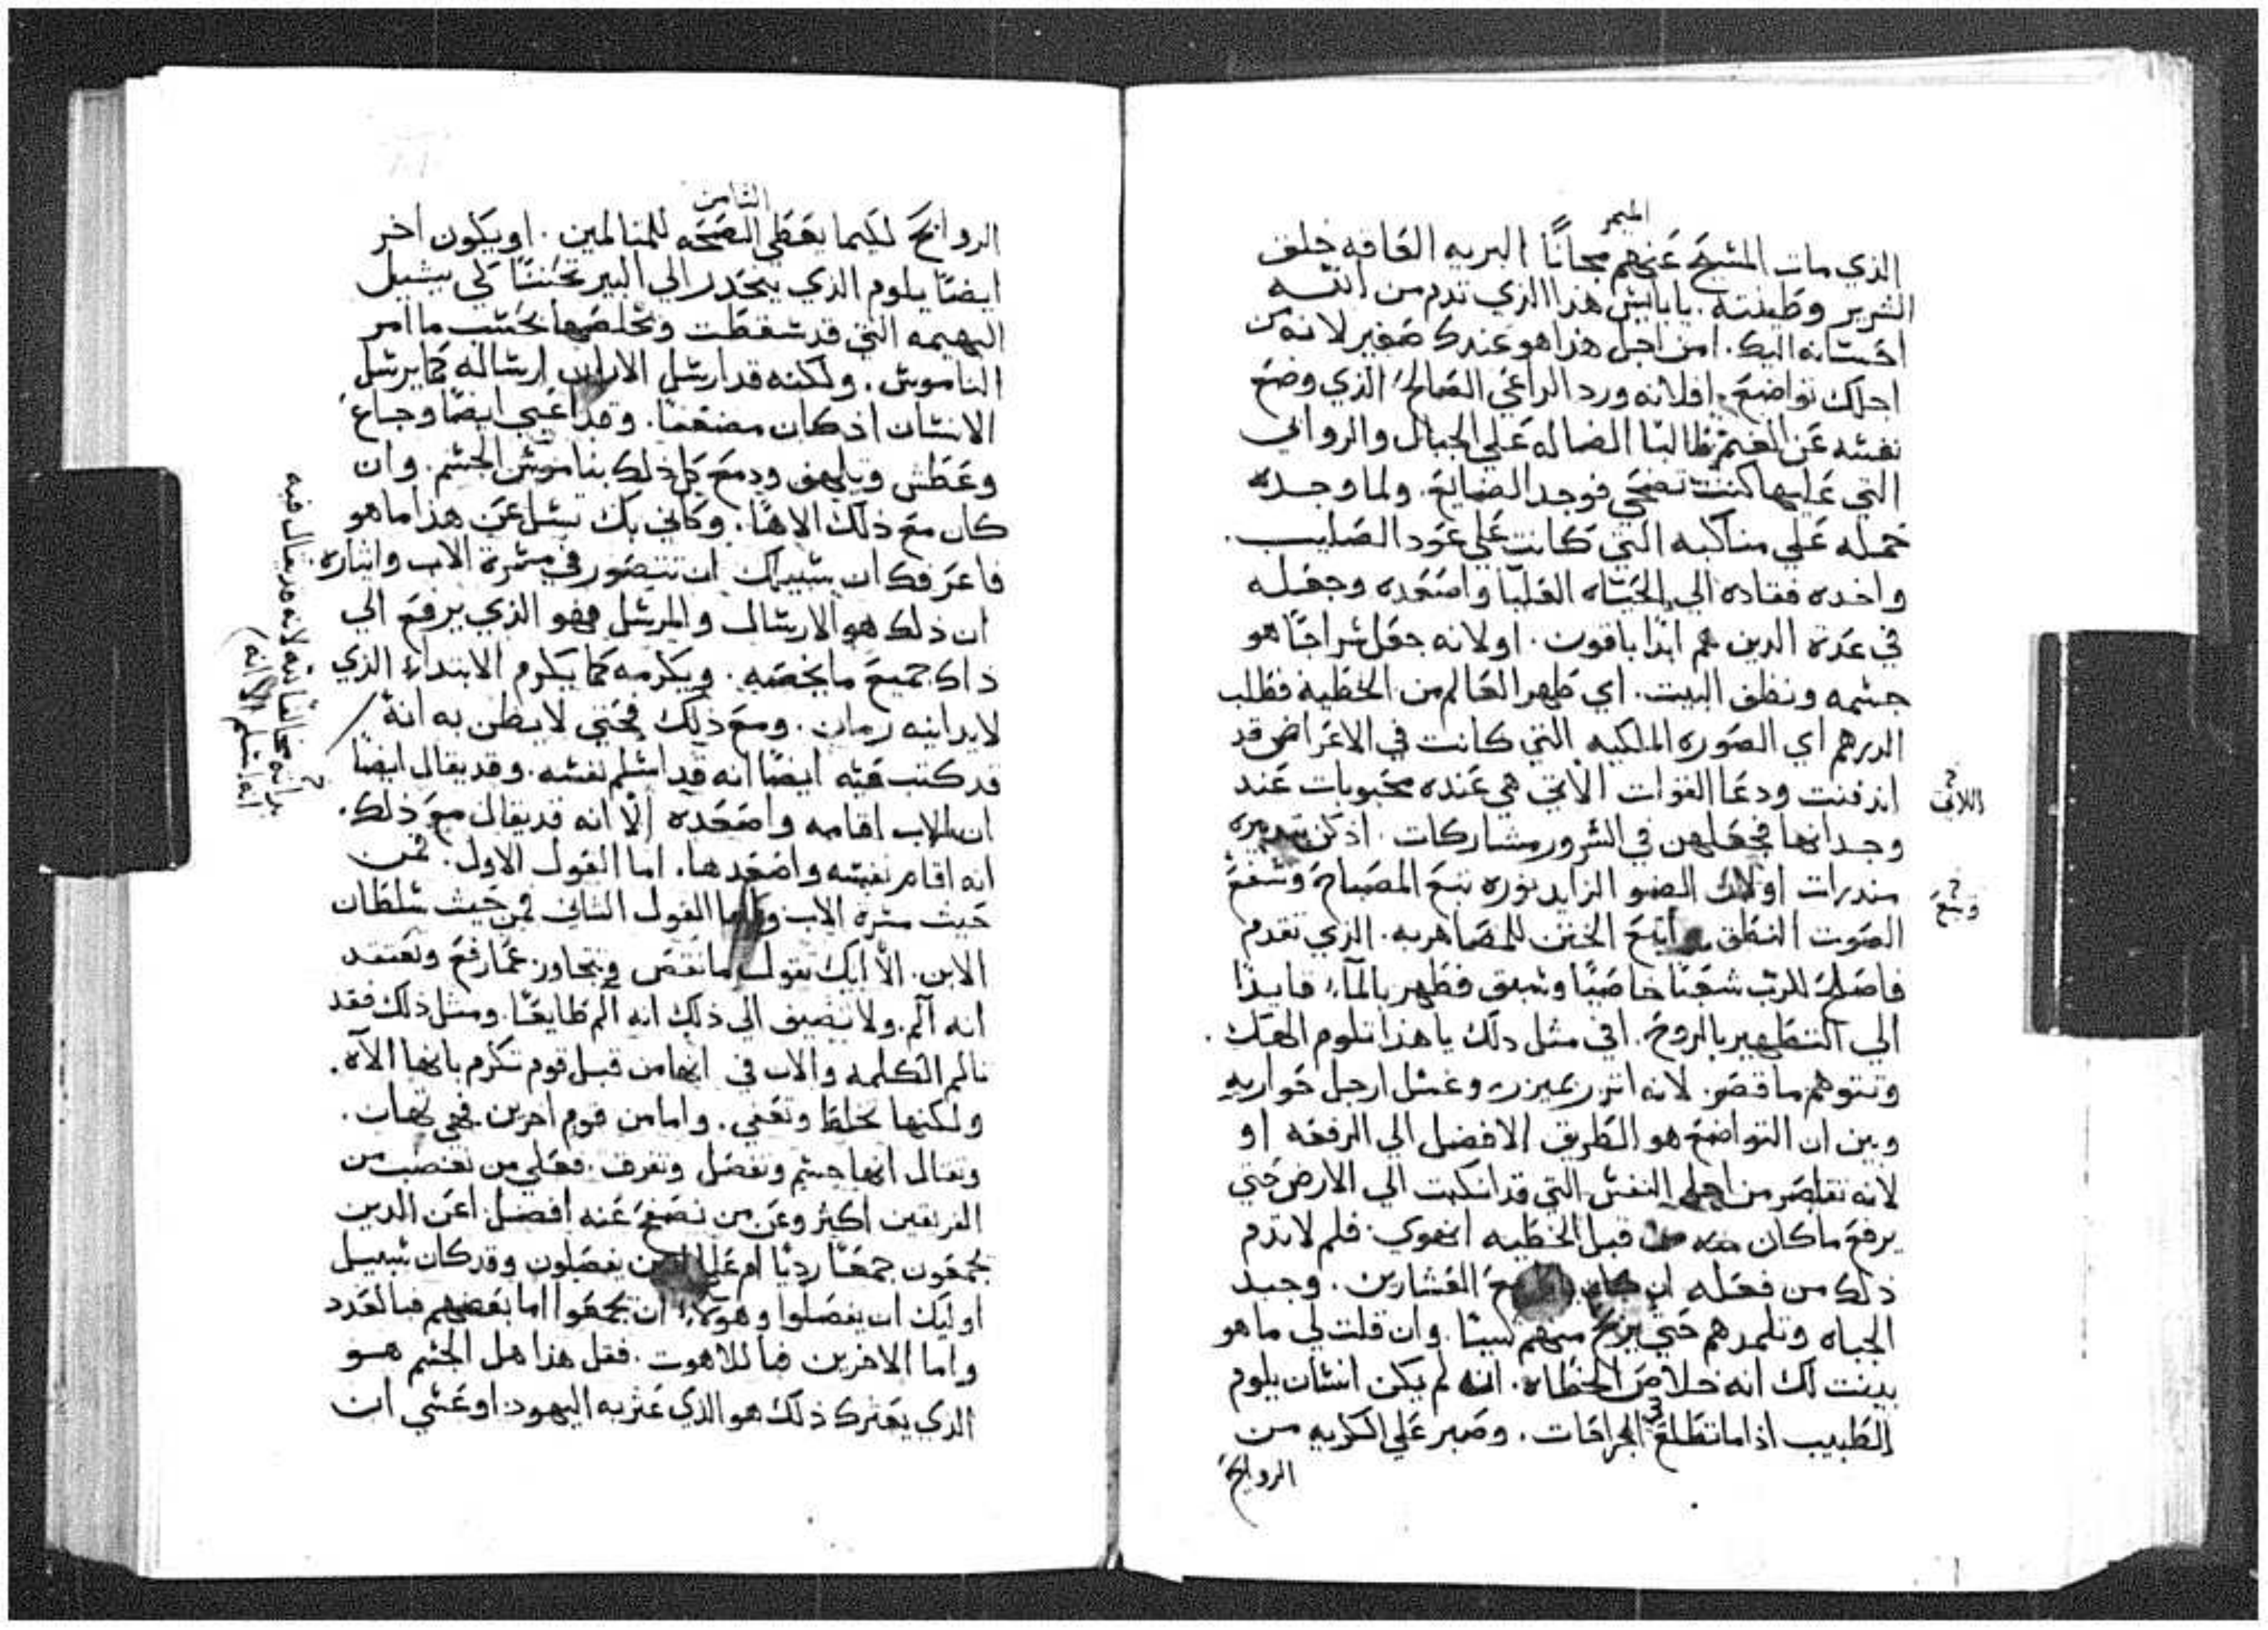 الميمر
الذي مات المسيح عنهم مجانًا البريه العاقه خلف
الشرير وطينته. يابايس هذا الذي تدم من اتته
احسانه اليك. امن اجل هذا هو عندك صغير لانه من
اجلك تواضع. افلانه ورد الراعي الصالح الذي وضع
نفسه عن الغنم طالبًا الضاله علي الجبال والروابي
التي عليها كنت تضحي فوجد الضايع. ولما وجده
حمله علي مناكبه التي كانت علي عود الصليب.
واخده فقاده الي الحياه العليا واصعده وجعله
في عدة الدين هم ابدًا باقون. اولانه جعل سراجًا هو
جسمه ونظف البيت. اي طهر العالم من الخطية فطلب
الدرهم اي الصوره الملكيه التي كانت في الاعراض قد
اندفنت ودعا القوات الاتي هي عنده محبوبات عند
اللاتي
وجدانها فجعلهن في السرور مشاركات. اذ كن
مندرات اولاك الضو الزايد نوره تبع المصباح وشفع
وتبع
الصوت النطق اتبع الختن للمصاهريه. الذي تقدم
فاصلح للرب شعبًا خاصيًا وسبق فطهر بالمآء قايدًا
الي التطهير بالروح. افي مثل دلك يا هذا تلوم الهك.
وتتوهم ماقصر. لانه اتزر بميزر وغسل ارجل حواريه
وبين ان التواضع هو الطريق الافضل الي الرفعه او
لانه تقاصر من اجل النفس التي قد انكبت الي الارض حتي
يرفع ماكان قبل الخطيه انهوي. فلم لاتدم
ذلك من فعله ان كان العشارين. وجبد
الجباه وتلمدهم حتي يربح منهم سيا. وان قلت لي ما هو
بينت لك انه خلاص الخطاه. انه لم يكن انسان يلوم
الطبيب اذا ماتطلع في الجراحات. وصبر علي الكريه من
الروايح
الثامن
الروايح لكيما يعطي الصحه للمتالمين. او يكون اخر
ايضًا يلوم الذي ينحدر الي البير تحننًا كي يشيل
البهيمه التي قد سقطت وتخلصها بحسب ما امر
الناموس. ولكنه قد ارسل الا ارساله كما يرسل
الانسان اذ كان مضعفًا. وقد اعيي ايضًا وجاع
وعطش وتلهف ودمع كل ذلك بناموس الجسم. وان
كان مع ذلك الاهًا. وكاني بك تسل عن هذا ما هو
فاعرفك ان سبيلك ان تتصور في مسرة الاب وايثاره
ان ذلك هو الارسال والمرسل فهو الذي يرفع الي
ذاك جميع ما يخصه. ويكرمه كما يكرم الابتداء الذي
لايدانيه زمان. ومع ذلك فحتي لا يظن به انهً
قد كتب فيه ايضًا انه قد اسلم نفسه. وقد يقال ايضًا
ان الاب اقامه واصعده الّا انه قد يقال مع ذلك.
انه اقام نفسه واصعدها. اما القول الاول. فمن
حيث مسرة الاب واما القول الثاني فمن حيث سلطان
الابن. الّا انك تقول ما نقص وتجاوز عما رفع وتعتقد
انه آلم. ولا تضيف الي ذلك انه الم طايعًا. ومثل ذلك فقد
تالم الكلمه والان في انها من قبل قوم تكرم بانها الآه.
ولكنها تخلط وتعفي. واما من قوم اخرين فهي تهان.
وتقال انها جسم وتفصل وتفرف. فعلي من تغضب من
الفريقين اكثر وعن من تصفح عنه افضل. اعن الدين
يجمعون جمعًا رديًا ام علي الدين يفصلون وقد كان سبيل
اوليك ان يفصلوا وهولاء ان يجمعوا اما بعضهم فبالعدد
واما الاخرين فباللاهوت. فقل هذا هل الجسم هو
الذي يعترك ذلك هو الذي عثر به اليهود. او عسي ان